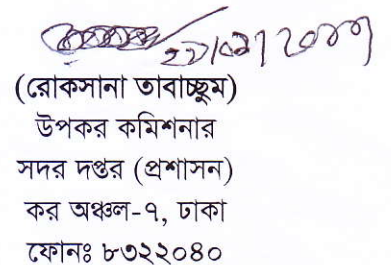 (রোকসানা তাবাচ্ছুম)
উপকর কমিশনার
সদর দপ্তর (প্রশাসন)
কর অঞ্চল-৭, ঢাকা
ফোনঃ ৮৩২২০৪০